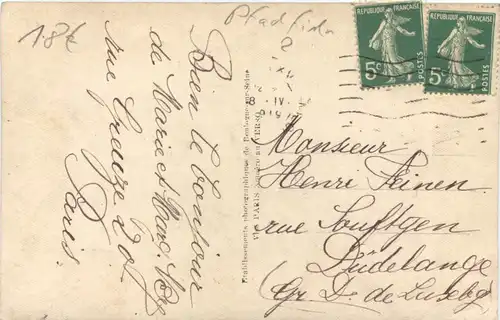 18€
Pfadfinder
Bien le bonjour
de Marie et Marg.
rue Greuze 20
Paris.
REPUBLIQUE FRANÇAISE
POSTES
5c
REPUBLIQUE FRANÇAISE
POSTES
5c
8 · IV
Etablissements photographiques de Boulogne-sur-Seine
PARIS Numéro au VERSO
Monsieur
Henri Steinen
rue
Dudelange
(Gr. D. de Luxebg)